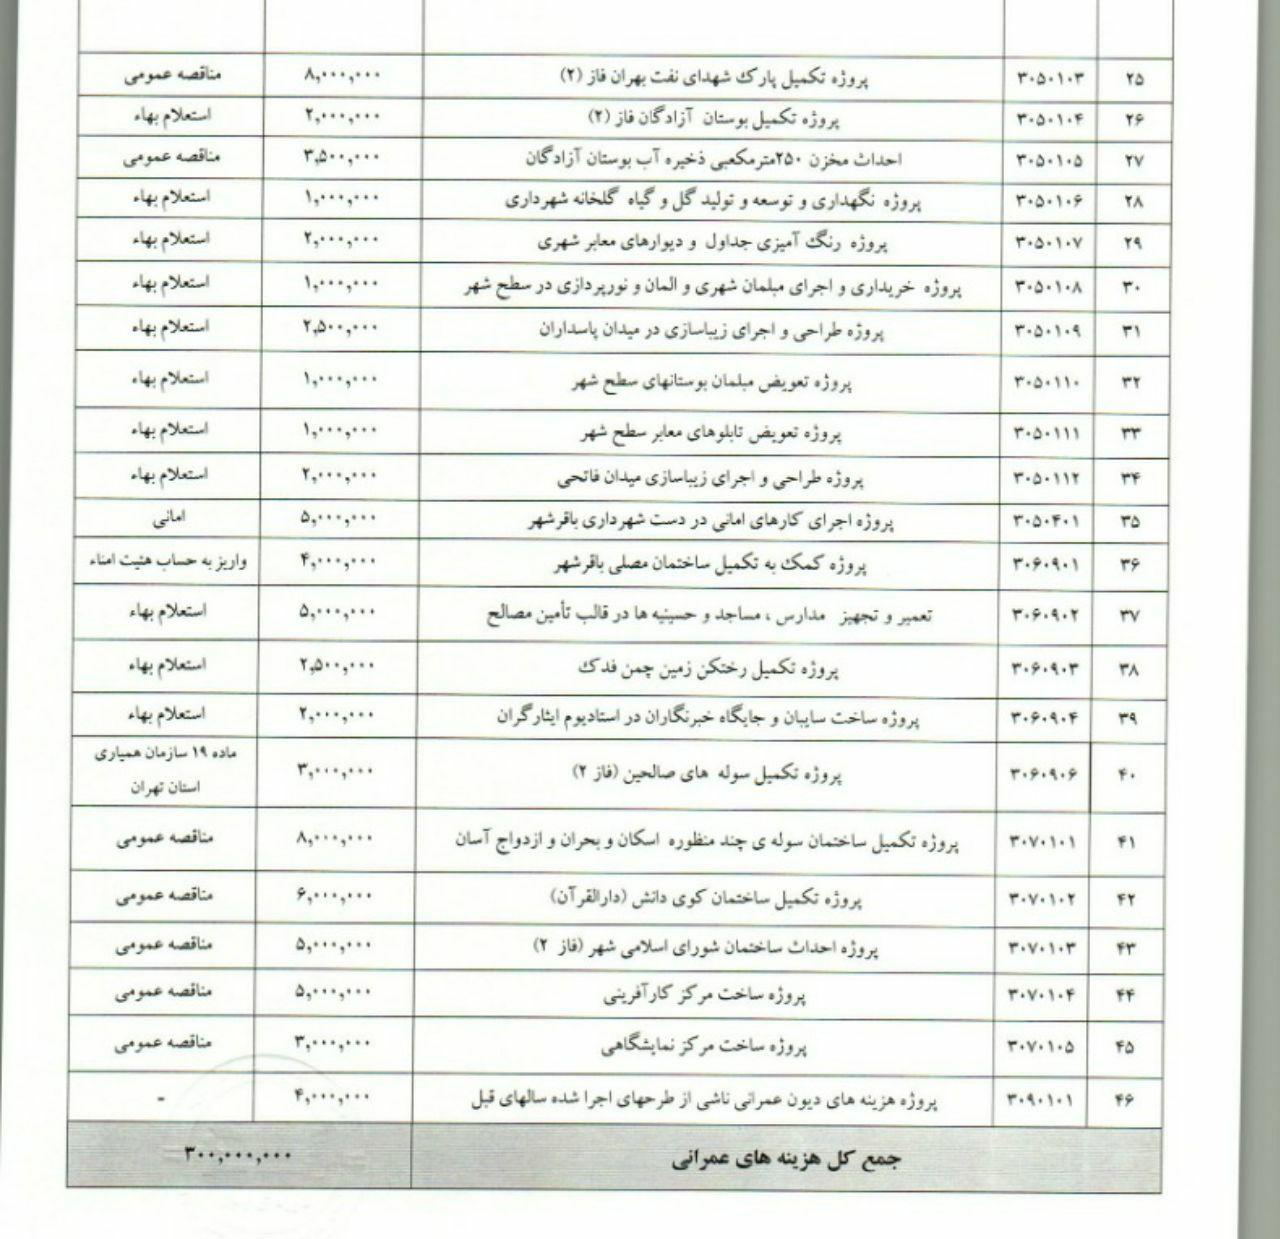 ۲۵ ۳۰۵۰۱۰۳ پروژه تکمیل پارک شهدای نفت بهران فاز (۲) ۸,۰۰۰,۰۰۰ مناقصه عمومی
۲۶ ۳۰۵۰۱۰۴ پروژه تکمیل بوستان آزادگان فاز (۲) ۲,۰۰۰,۰۰۰ استعلام بهاء
۲۷ ۳۰۵۰۱۰۵ احداث مخزن ۲۵۰مترمکعبی ذخیره آب بوستان آزادگان ۳,۵۰۰,۰۰۰ مناقصه عمومی
۲۸ ۳۰۵۰۱۰۶ پروژه نگهداری و توسعه و تولید گل و گیاه گلخانه شهرداری ۱,۰۰۰,۰۰۰ استعلام بهاء
۲۹ ۳۰۵۰۱۰۷ پروژه رنگ آمیزی جداول و دیوارهای معابر شهری ۲,۰۰۰,۰۰۰ استعلام بهاء
۳۰ ۳۰۵۰۱۰۸ پروژه خریداری و اجرای مبلمان شهری و المان و نورپردازی در سطح شهر ۱,۰۰۰,۰۰۰ استعلام بهاء
۳۱ ۳۰۵۰۱۰۹ پروژه طراحی و اجرای زیباسازی در میدان پاسداران ۲,۵۰۰,۰۰۰ استعلام بهاء
۳۲ ۳۰۵۰۱۱۰ پروژه تعویض مبلمان بوستانهای سطح شهر ۱,۰۰۰,۰۰۰ استعلام بهاء
۳۳ ۳۰۵۰۱۱۱ پروژه تعویض تابلوهای معابر سطح شهر ۱,۰۰۰,۰۰۰ استعلام بهاء
۳۴ ۳۰۵۰۱۱۲ پروژه طراحی و اجرای زیباسازی میدان فاتحی ۲,۰۰۰,۰۰۰ استعلام بهاء
۳۵ ۳۰۵۰۴۰۱ پروژه اجرای کارهای امانی در دست شهرداری باقرشهر ۵,۰۰۰,۰۰۰ امانی
۳۶ ۳۰۶۰۹۰۱ پروژه کمک به تکمیل ساختمان مصلی باقرشهر ۴,۰۰۰,۰۰۰ واریز به حساب هئیت امناء
۳۷ ۳۰۶۰۹۰۲ تعمیر و تجهیز مدارس ، مساجد و حسینیه ها در قالب تأمین مصالح ۵,۰۰۰,۰۰۰ استعلام بهاء
۳۸ ۳۰۶۰۹۰۳ پروژه تکمیل رختکن زمین چمن فدک ۲,۵۰۰,۰۰۰ استعلام بهاء
۳۹ ۳۰۶۰۹۰۴ پروژه ساخت سایبان و جایگاه خبرنگاران در استادیوم ایثارگران ۲,۰۰۰,۰۰۰ استعلام بهاء
۴۰ ۳۰۶۰۹۰۶ پروژه تکمیل سوله های صالحین (فاز ۲) ۳,۰۰۰,۰۰۰ ماده ۱۹ سازمان همیاری
استان تهران
۴۱ ۳۰۷۰۱۰۱ پروژه تکمیل ساختمان سوله ی چند منظوره اسکان و بحران و ازدواج آسان ۸,۰۰۰,۰۰۰ مناقصه عمومی
۴۲ ۳۰۷۰۱۰۲ پروژه تکمیل ساختمان کوی دانش (دارالقرآن) ۶,۰۰۰,۰۰۰ مناقصه عمومی
۴۳ ۳۰۷۰۱۰۳ پروژه احداث ساختمان شورای اسلامی شهر (فاز ۲) ۵,۰۰۰,۰۰۰ مناقصه عمومی
۴۴ ۳۰۷۰۱۰۴ پروژه ساخت مرکز کارآفرینی ۵,۰۰۰,۰۰۰ مناقصه عمومی
۴۵ ۳۰۷۰۱۰۵ پروژه ساخت مرکز نمایشگاهی ۳,۰۰۰,۰۰۰ مناقصه عمومی
۴۶ ۳۰۹۰۱۰۱ پروژه هزینه های دیون عمرانی ناشی از طرحهای اجرا شده سالهای قبل ۴,۰۰۰,۰۰۰ -
جمع کل هزینه های عمرانی ۳۰۰,۰۰۰,۰۰۰